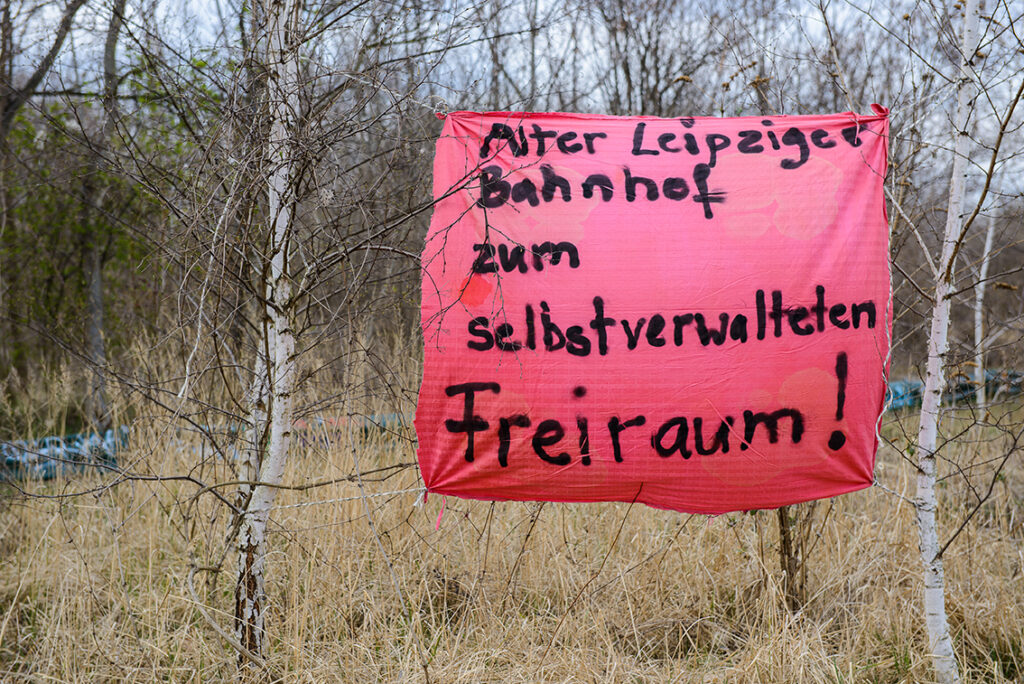 Alter Leipziger
Bahnhof
zum
selbstverwalteten
Freiraum!